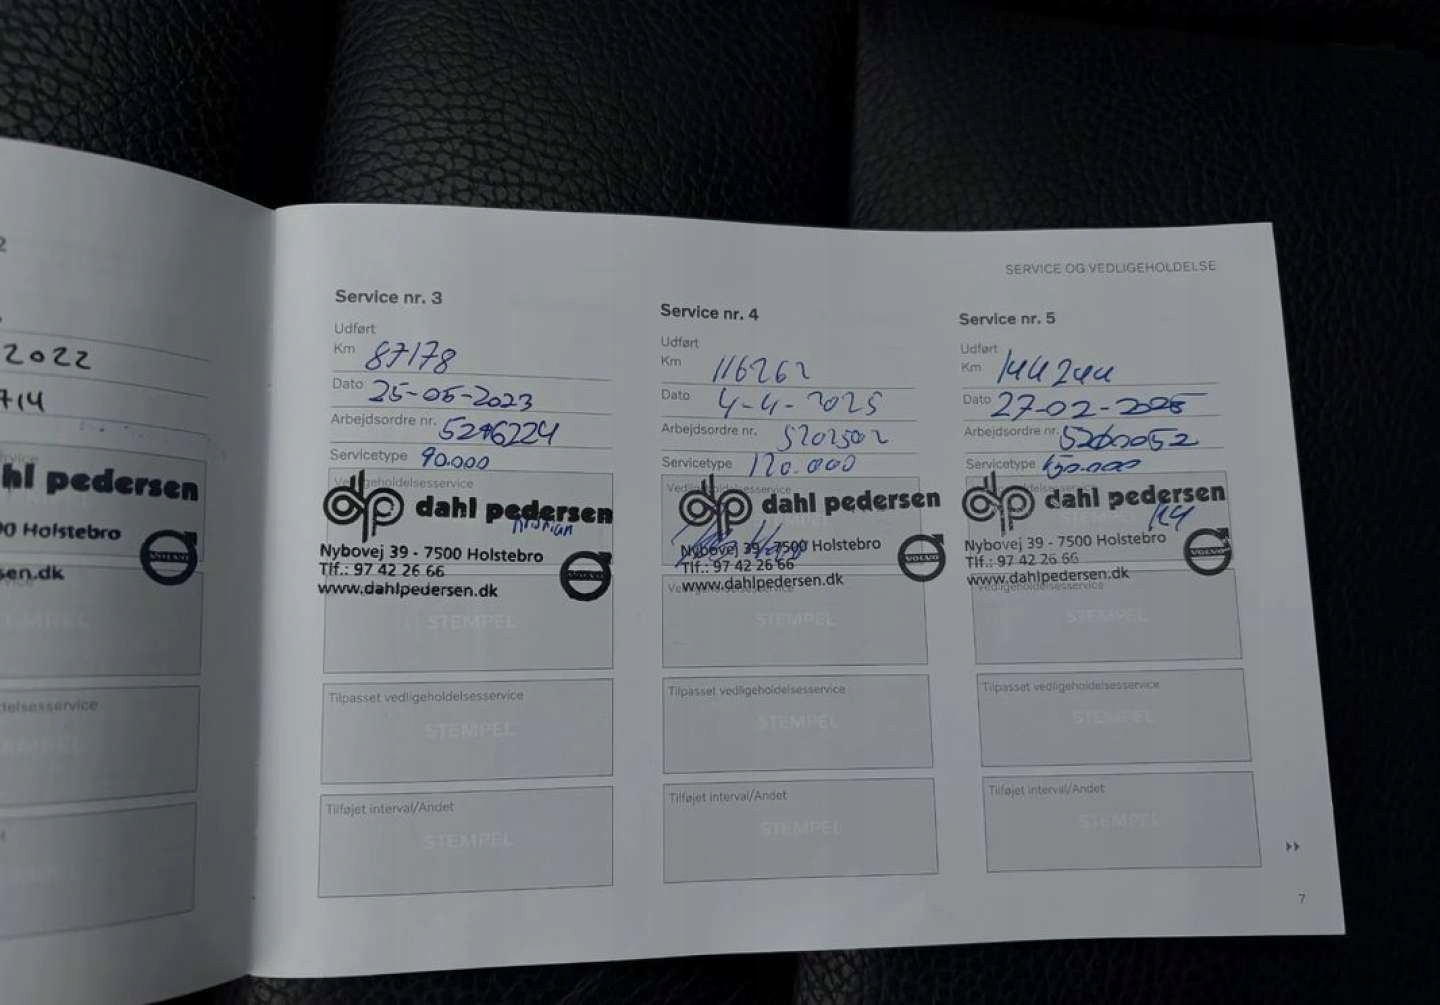 2022
714
hl pedersen
00 Holstebro
sen.dk
VOLVO
delsesservice
SERVICE OG VEDLIGEHOLDELSE
Service nr. 3
Udført
Km 87178
Dato 25-05-2023
Arbejdsordre nr. 5276224
Servicetype 90.000
Vedligeholdelsesservice
dp dahl pedersen
Nybovej 39 - 7500 Holstebro
Tlf.: 97 42 26 66
www.dahlpedersen.dk
VOLVO
STEMPEL
Tilpasset vedligeholdelsesservice
STEMPEL
Tilføjet interval/Andet
STEMPEL
Service nr. 4
Udført
Km 116262
Dato 4-4-2025
Arbejdsordre nr. 5202502
Servicetype 120.000
dp dahl pedersen
Nybovej 39 - 7500 Holstebro
Tlf.: 97 42 26 66
www.dahlpedersen.dk
VOLVO
STEMPEL
Tilpasset vedligeholdelsesservice
STEMPEL
Tilføjet interval/Andet
STEMPEL
Service nr. 5
Udført
Km 144244
Dato 27-02-2026
Arbejdsordre nr. 5260052
Servicetype 150.000
dp dahl pedersen
Nybovej 39 - 7500 Holstebro
Tlf.: 97 42 26 66
www.dahlpedersen.dk
VOLVO
Vedligeholdelsesservice
STEMPEL
Tilpasset vedligeholdelsesservice
STEMPEL
Tilføjet interval/Andet
STEMPEL
7